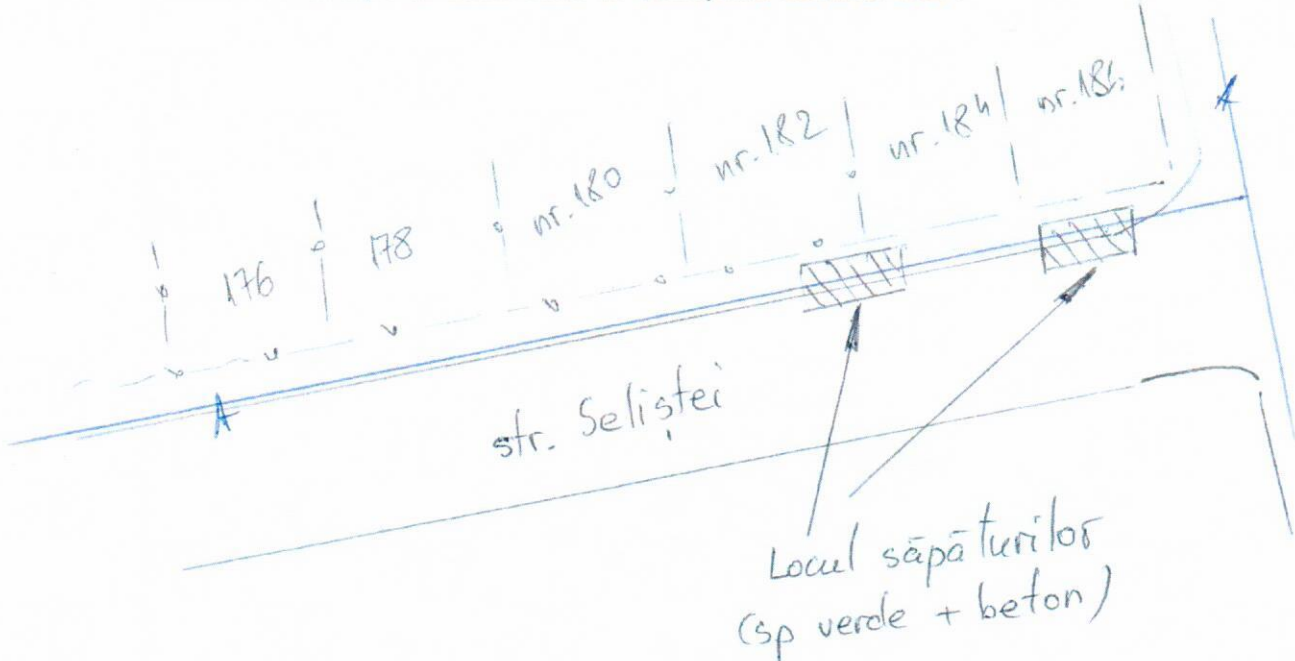 176
178
nr. 180
nr. 182
nr. 184
nr. 186
A
A
str. Seliștei
Locul săpăturilor
(sp verde + beton)